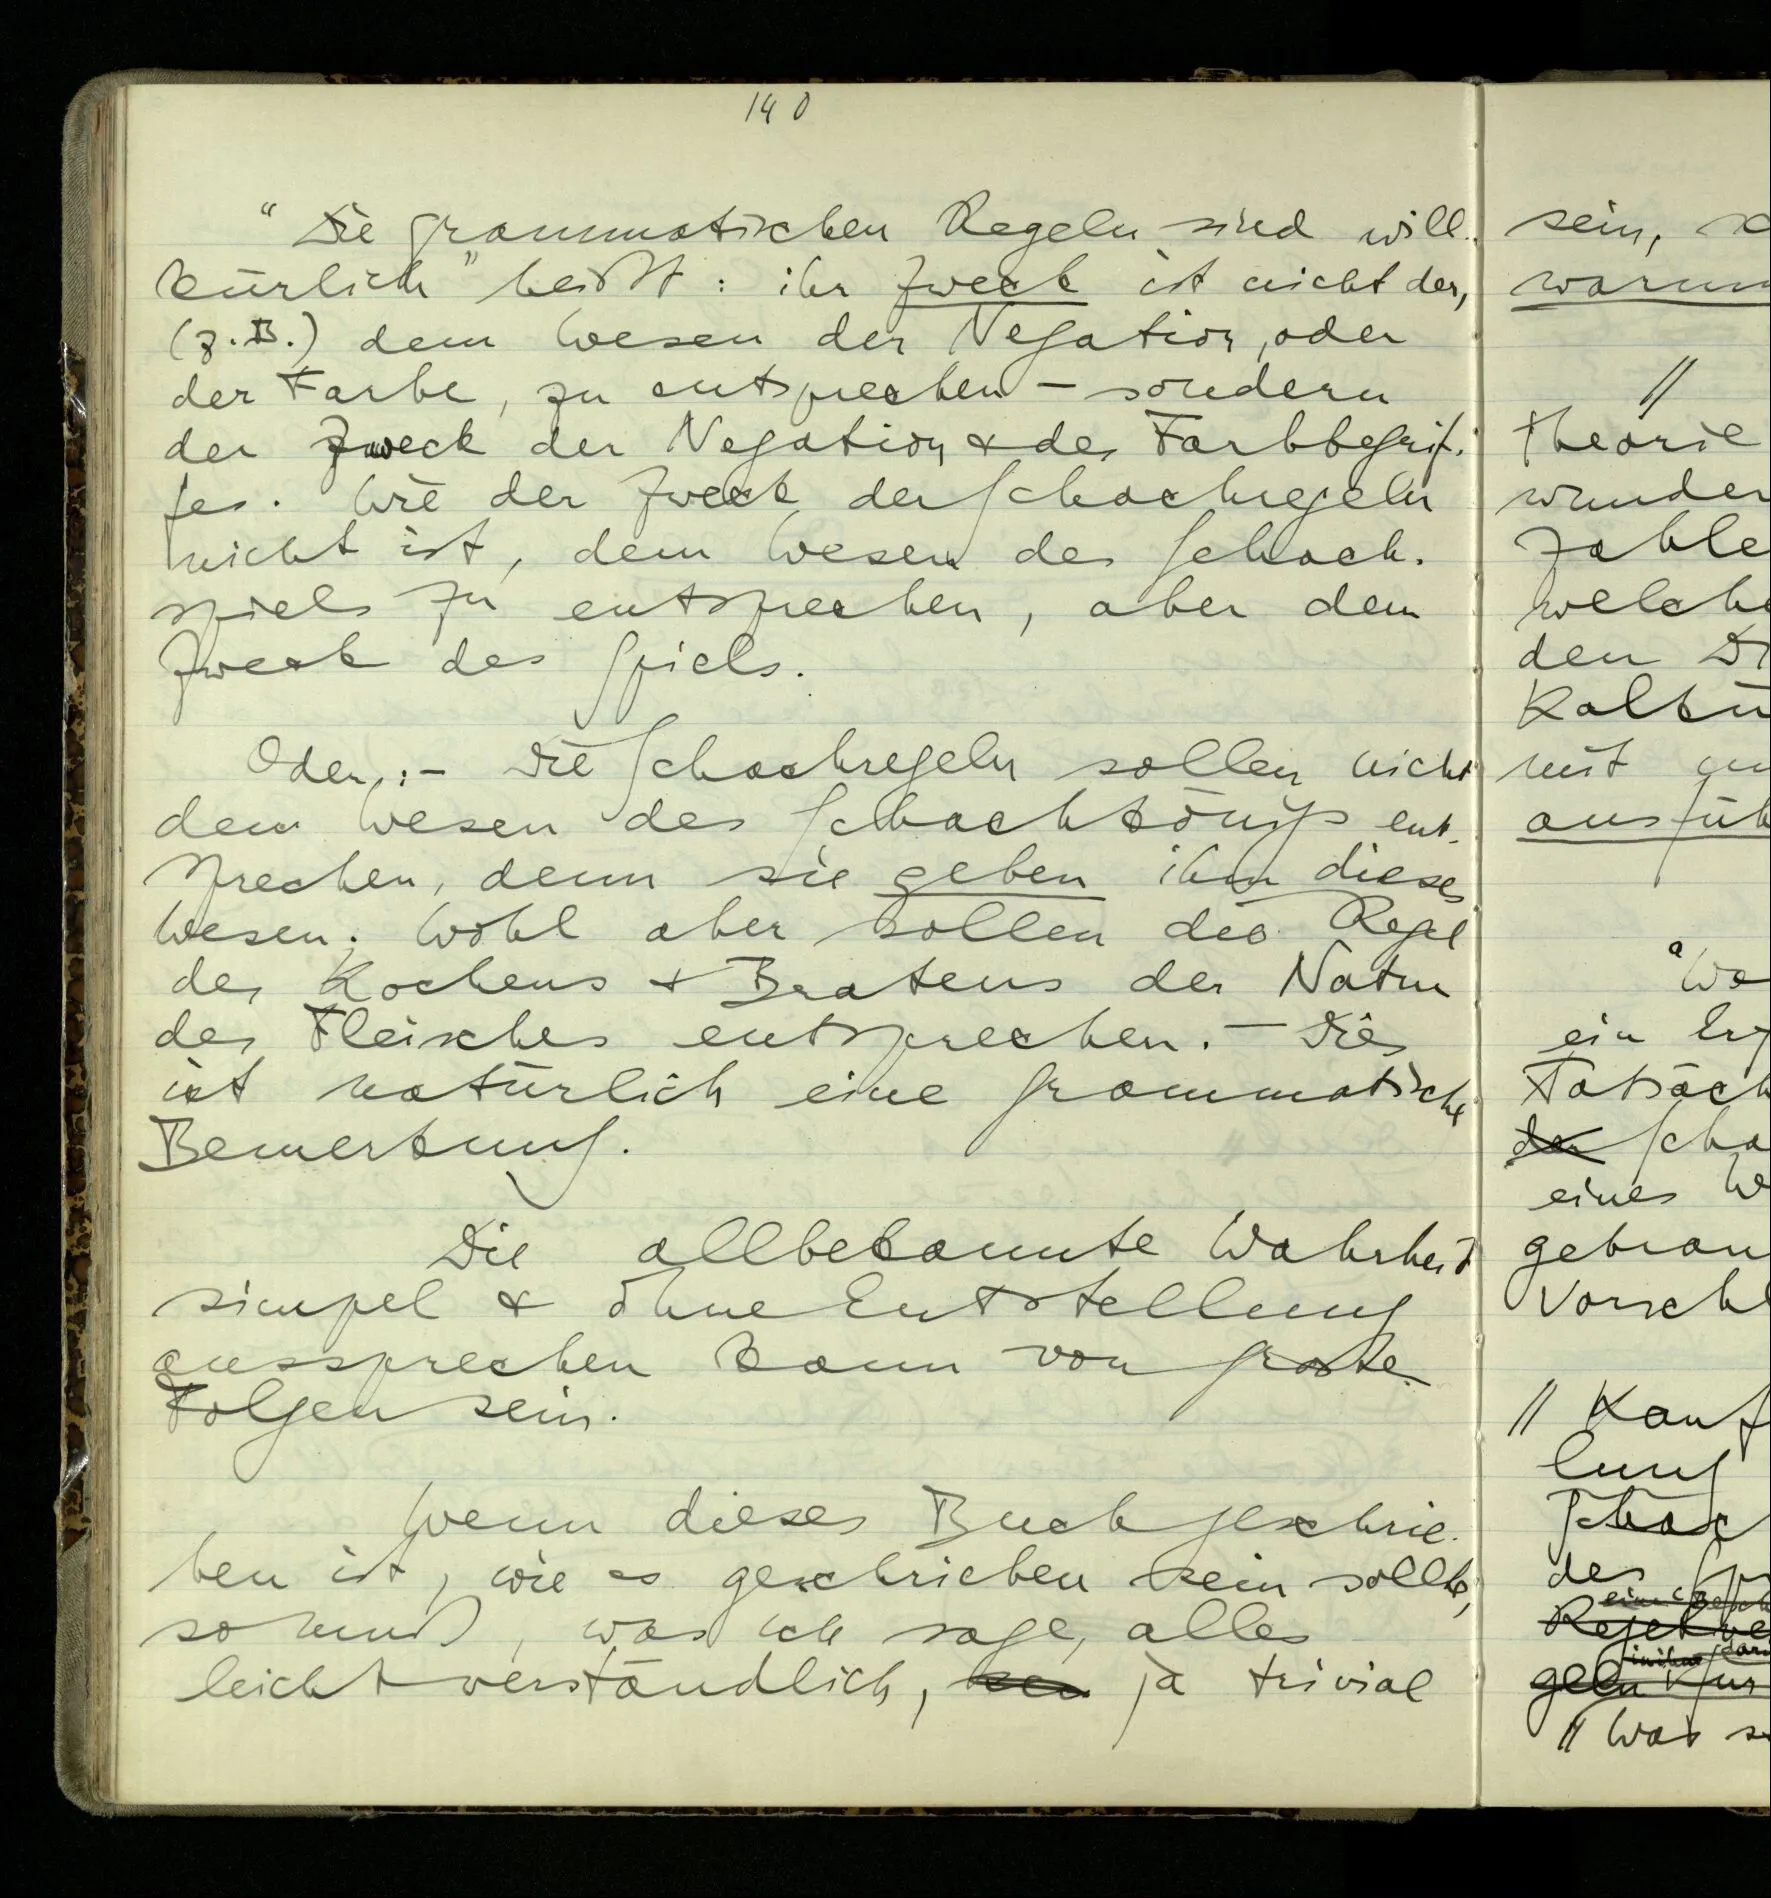 140
"Die grammatischen Regeln sind will-
kürlich" heißt: ihr Zweck ist nicht der,
(z.B.) dem Wesen der Negation, oder
der Farbe, zu entsprechen – sondern
der Zweck der Negation & des Farbbegrif-
fes. Wie der Zweck der Schachregeln
nicht ist, dem Wesen des Schach-
spiels zu entsprechen, aber dem
Zweck des Spiels.
Oder: – Die Schachregeln sollen nicht
dem Wesen des Schachkönigs ent-
sprechen, denn sie geben ihm dieses
Wesen; wohl aber sollen die Regel
des Kochens & Bratens der Natur
des Fleisches entsprechen. – Dies
ist natürlich eine grammatische
Bemerkung.
Die allbekannte Wahrheit
simpel & ohne Entstellung
aussprechen kann von große
Folgen sein.
Wenn dieses Buch geschrie-
ben ist, wie es geschrieben sein sollte,
so muß, was ich sage, alles
leicht verständlich, ja trivial
sein,
warum
//
Theorie
wunder
Zahle
welche
den
Kalkü
mit
ausfüh
ein
Tatsäch
der Scha
eines W
gebrau
Vorschl
// Kauf
lung
Schac
des Sp
// Was